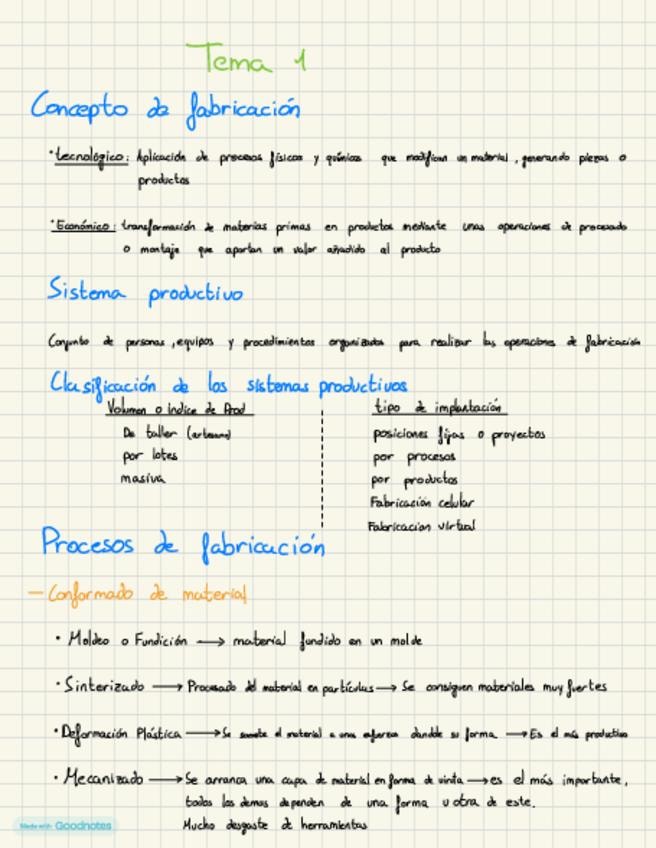 Tema 1
Concepto de fabricación
• tecnológico: Aplicación de procesos físicos y químicos que modifican un material, generando piezas o
productos
• Económico: transformación de materias primas en productos mediante unas operaciones de procesado
o montaje que aportan un valor añadido al producto
Sistema productivo
Conjunto de personas, equipos y procedimientos organizados para realizar las operaciones de fabricación
Clasificación de los sistemas productivos
Volumen o índice de Prod
De taller (artesano)
por lotes
masiva
tipo de implantación
posiciones fijas o proyectos
por procesos
por productos
Fabricación celular
Fabricacion virtual
Procesos de fabricación
— Conformado de material
• Moldeo o Fundición → material fundido en un molde
• Sinterizado → Procesado del material en partículas → Se consiguen materiales muy fuertes
• Deformación Plástica → Se somete el material a unos esfuerzos dandole su forma → Es el más productivo
• Mecanizado → Se arranca una capa de material en forma de viruta → es el más importante,
todos los demas dependen de una forma u otra de este.
Mucho desgaste de herramientas
Made with Goodnotes